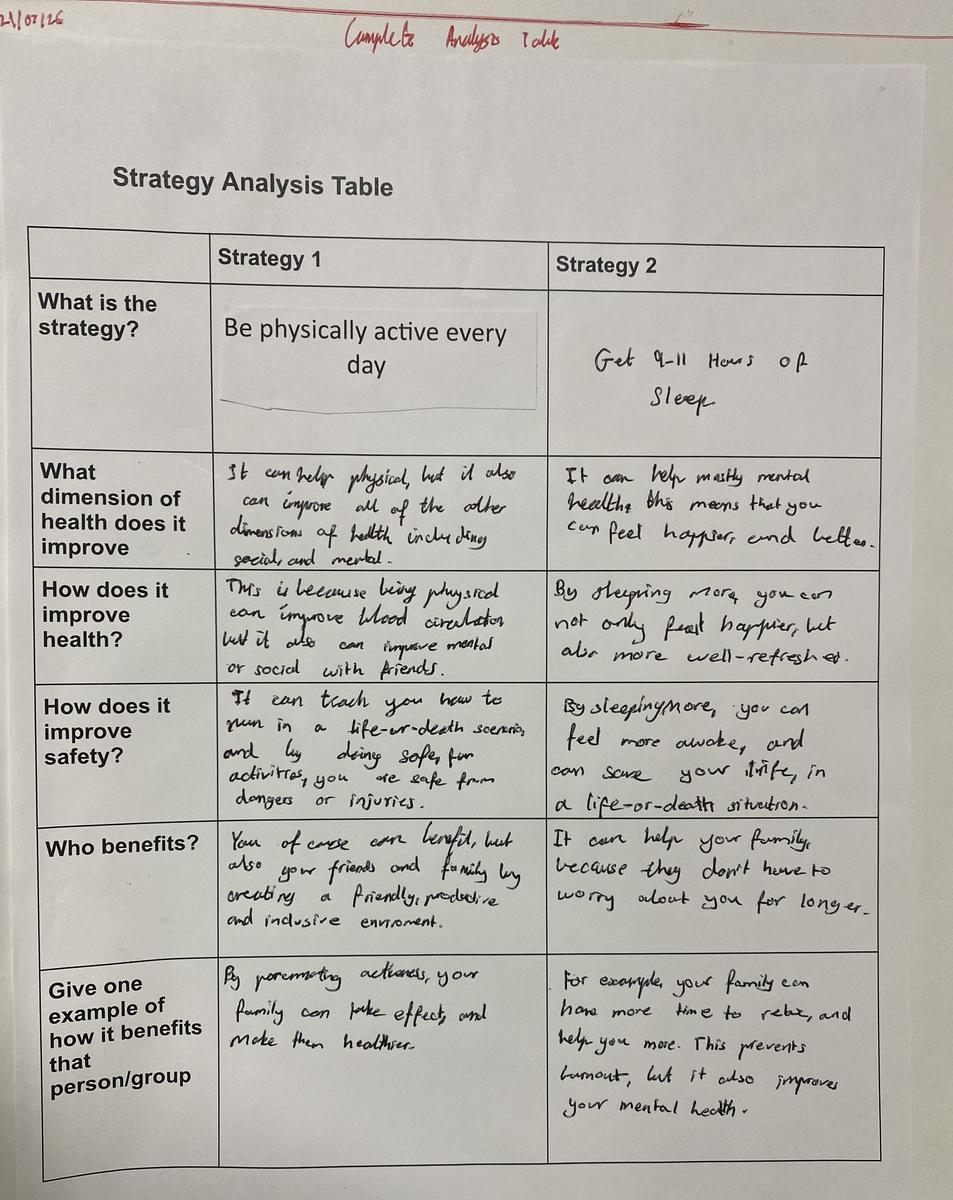 Complete Analysis Table
Strategy Analysis Table
Strategy 1
Strategy 2
What is the
strategy?
Be physically active every
day
Get 9-11 Hours of
Sleep
What
dimension of
health does it
improve
It can help physical, but it also
can improve all of the other
dimensions of health including
social, and mental.
It can help mostly mental
health, this means that you
can feel happier, and better.
How does it
improve
health?
This is because being physical
can improve blood circulation
but it also can improve mental
or social with friends.
By sleeping more, you can
not only feel happier, but
also more well-refreshed.
How does it
improve
safety?
It can teach you how to
run in a life-or-death scenario,
and by doing safe, fun
activities, you are safe from
dangers or injuries.
By sleeping more, you can
feel more awake, and
can save your life, in
a life-or-death situation.
Who benefits?
You of cause can benefit, but
also your friends and family by
creating a friendly, productive
and inclusive enviroment.
It can help your family,
because they don't have to
worry about you for longer.
Give one
example of
how it benefits
that
person/group
By activeness, your
family can take effect, and
make them healthier.
For example, your family can
have more time to relax, and
help you more. This prevents
burnout, but it also improves
your mental health.